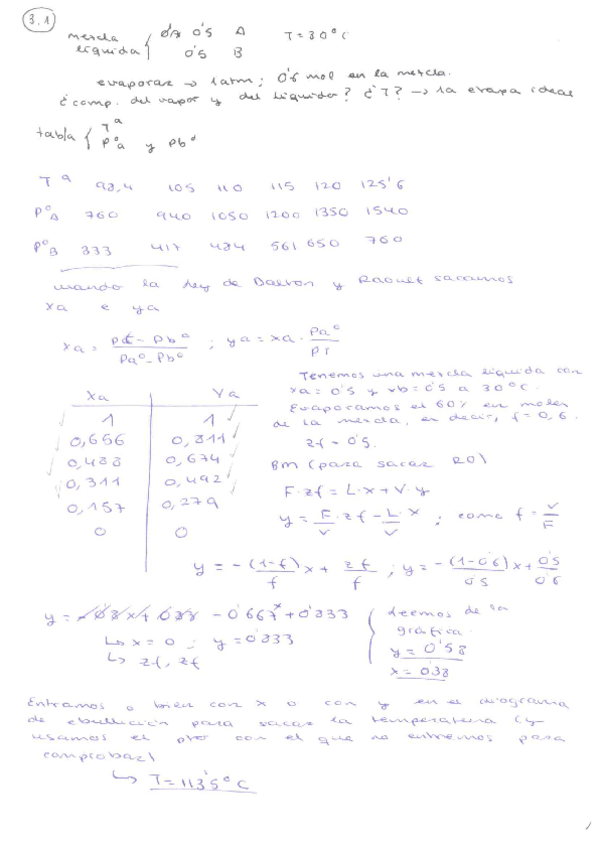 3.1
mezcla líquida { 0'5 A T=30ºC
0'5 B
evaporar → 1atm; 0'6 mol en la mezcla.
¿comp. del vapor y del líquido? ¿T? → 1a etapa ideal
tabla { Tª
Pºa y Pbº
Tª 98,4 105 110 115 120 125'6
PºA 760 940 1050 1200 1350 1540
PºB 333 417 484 561 650 760
usando la ley de Dalton y Raoult sacamos
xa e ya
xa = (Pt - Pbº)/(Paº - Pbº) ; ya = xa · Paº/PT
Tenemos una mezcla líquida con
xa = 0'5 y xb = 0'5 a 30ºC.
Evaporamos el 60% en moles
de la mezcla, es decir, f = 0,6.
zf = 0'5.
Xa Ya
1 1
0,656 0,811
0,488 0,674
0,311 0,492
0,157 0,279
0 0
BM (para sacar RO)
F·zf = L·x + V·y
y = F/V · zf - L/V · x ; como f = V/F
y = -(1-f)/f x + zf/f ; y = -(1-0'6)/0'5 x + 0'5/0'6
y = - 0'667x + 0'833
↳ x = 0 ; y = 0'833
↳ zf, zf
Leemos de la
gráfica.
y = 0'58
x = 0'38
Entramos o bien con x o con y en el diagrama
de ebullición para sacar la temperatura (y
usamos el pto con el que no entremos para
comprobar)
↳ T = 113'5ºC